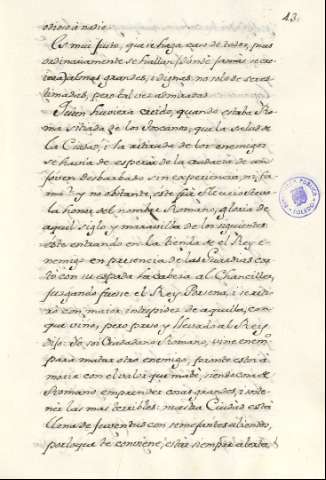 13.
odioso à nadie.
Es mui justo, que se haga caso de todos, pues
ordinariamente se hallan, donde jamas se cre
almas grandes, i dignas no solo de ser es
timadas, pero tal vez admiradas.
Quien huviera creido, quando estaba Ro
ma sitiada de los Toscanos, que la salud de
la Ciudad, i la retirada de los enemigos
se havia de esperar de la audacia de un
joven desbarbado sin experiencia, ni fa
ma? y no obstante, este fue Mucio Scevola
la honra del nombre Romano, gloria de
aquel siglo, y maravilla de los siguientes:
este entrando en la tienda de el Rey e
nemigo en presencia de las Guardias cor
tò con su espada la cabeza al Chanciller,
juzgando fuese el Rey Porsena, i se reti
rò con maior intrepidez de aquella, con
que vino, pero preso y llevado al Rey
dijo: Io soi Ciudadano Romano, vine enem
para matar otro enemigo, pronto estoi à
morir con el valor que maté, siendo cosa de
Romano emprender cosas grandes, i soste
ner las mas terribles: nuestra Ciudad està
llena de Juventud con semejantes alientos,
por lo que te conviene, estar siempre alerta,
BIBLIOTECA PUBLICA
TOLEDO